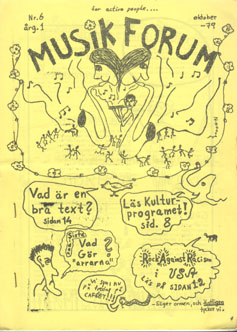 for active people....
Nr. 6
årg. 1
oktober
-79
MUSIKFORUM
Vad är en
bra text?
sidan 14
Läs Kultur-
programet!
sid. 8
Vad
Gör
"arrarna"
Rock Against Racism
i USA
Läs på SIDAN 12
- säger ormen, och
tycker vi.